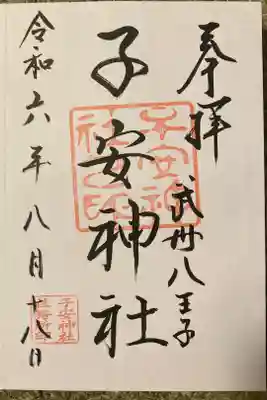 奉拝
武州八王子
子安神社
令和六年八月十八日
子安神社